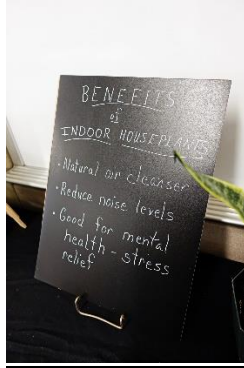 BENEFITS
of
INDOOR HOUSEPLANTS
• Natural air cleanser
• Reduce noise levels
• Good for mental
health - stress
relief